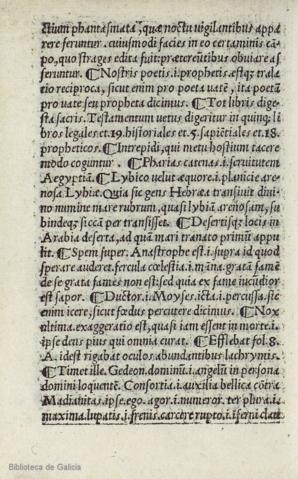 ctium phantasmata, quæ noctu vigilantibus appa
rere feruntur. cuiusmodi facies in eo certaminis cã-
po, quo strages edita fuit: prætereũtibus obviare as
feruntur. ¶Nostris poetis. i. prophetis. estq; transla
tio reciproca, sicut enim pro poeta vatẽ, ita poetã
pro vate seu propheta dicimus. ¶Tot libris dige-
sta sacris. Testamentum uetus digeritur in quinq; li
bros legales et. 19. historiales et. 5. sapiẽtiales et. 18.
propheticos. ¶Intrepidi, qui metu hostium tacere
modo coguntur. ¶Pharias catenas. i. seruitutem
Aegyptiã. ¶Lybico uelut æquore. i. planicie are-
nosa Lybiæ. Quia sic gens Hebræa transiuit diui-
no numine mare rubrum, quasi lybiã arenosam, su
bindeq; siccã per transisset. ¶Desertisq; locis in
Arabia deserta, ad quãm mari tranato primũ appu
lit. ¶Spem super. Anastrophe est. i. supra id quod
sperare auderet. fercula cœlestia. i. mãna. gratã famẽ
de se grata fames non est: sed quia ex fame iucũdior
est sapor. ¶Ductor. i. Moyses. icta. i. percussa. sic
enim icere, sicut fœdus percutere dicimus. ¶Nox
ultima. exaggeratio est, quasi iam essent in morte. i.
ipse deus pius qui omnia curat. ¶Efflebat fol. 8.
A. idest rigabat oculos abundantibus lachrymis.
¶Timet ille. Gedeon. dominũ. i. angelũ in persona
domini loquentẽ. Consortia. i. auxilia bellica cõtra
Madianitas. ipse. ego. agor. i. numeror. ter plura. i.
maxima. lupatis. i. frenis. carcere rupto, i. iferni clau
Biblioteca de Galicia